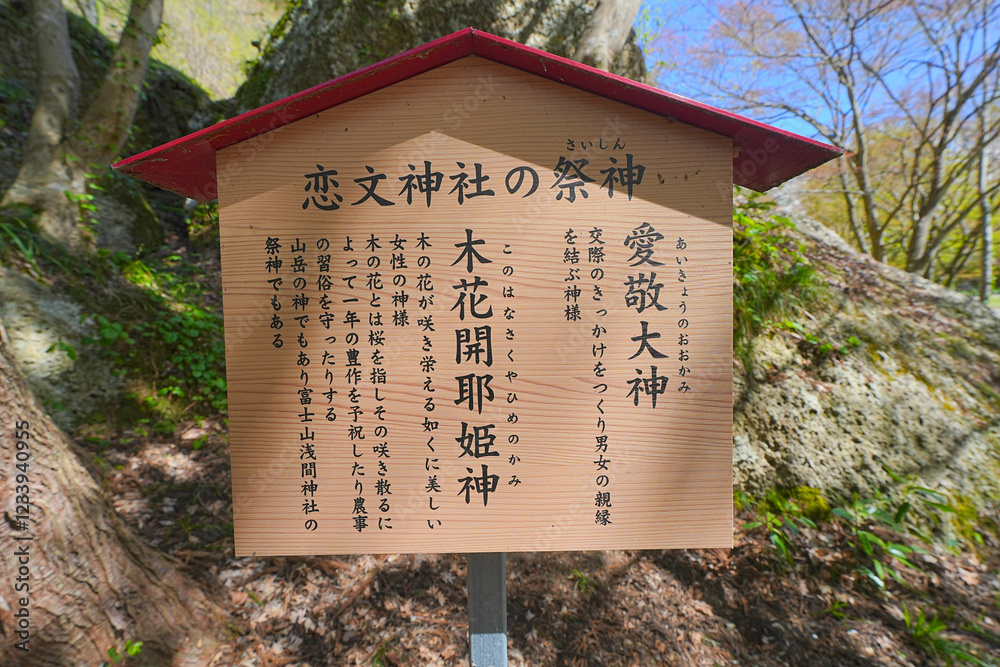 さいしん
恋文神社の祭神
あいきょうのおおかみ
愛敬大神
交際のきっかけをつくり男女の親縁
を結ぶ神様
このはなさくやひめのかみ
木花開耶姫神
木の花が咲き栄える如くに美しい
女性の神様
木の花とは桜を指しその咲き散るに
よって一年の豊作を予祝したり農事
の習俗を守ったりする
山岳の神でもあり富士山浅間神社の
祭神でもある
Adobe Stock | #1283940955